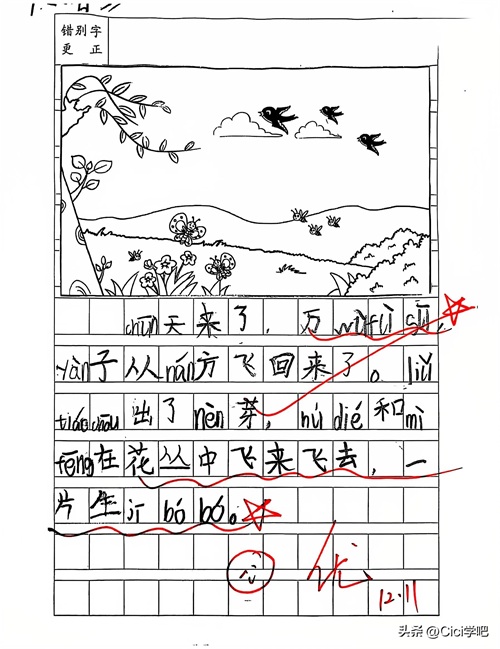 错别字
更 正
chūn天来了，万wù fù sū，
yàn子从nán方飞回来了。liǔ
tiáo chōu出了nèn芽，hú dié和mì
fēng在花丛中飞来飞去，一
片生jī bó bó。
优
12.11
头条 @Cici学吧